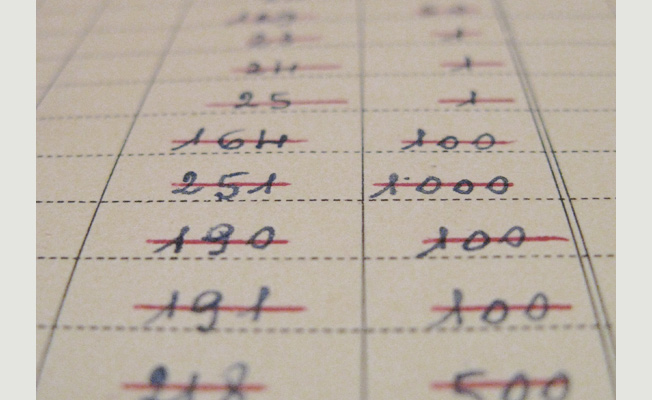 24 1
25 1
164 100
251 1000
190 100
191 100
218 500